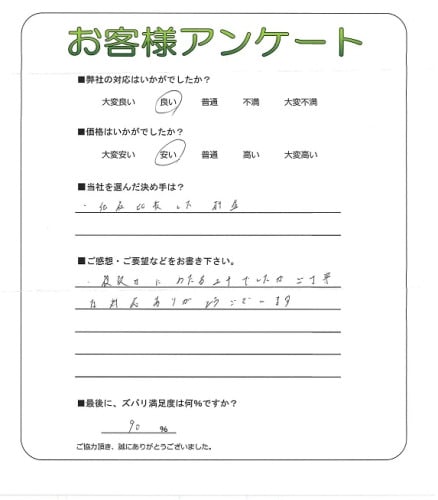 お客様アンケート
■弊社の対応はいかがでしたか？
大変良い 良い 普通 不満 大変不満
■価格はいかがでしたか？
大変安い 安い 普通 高い 大変高い
■当社を選んだ決め手は？
・他店比較した結果
■ご感想・ご要望などをお書き下さい。
にわたる でしたがご丁寧
な対応ありがとうございます
■最後に、ズバリ満足度は何%ですか？
90 %
ご協力頂き、誠にありがとうございました。